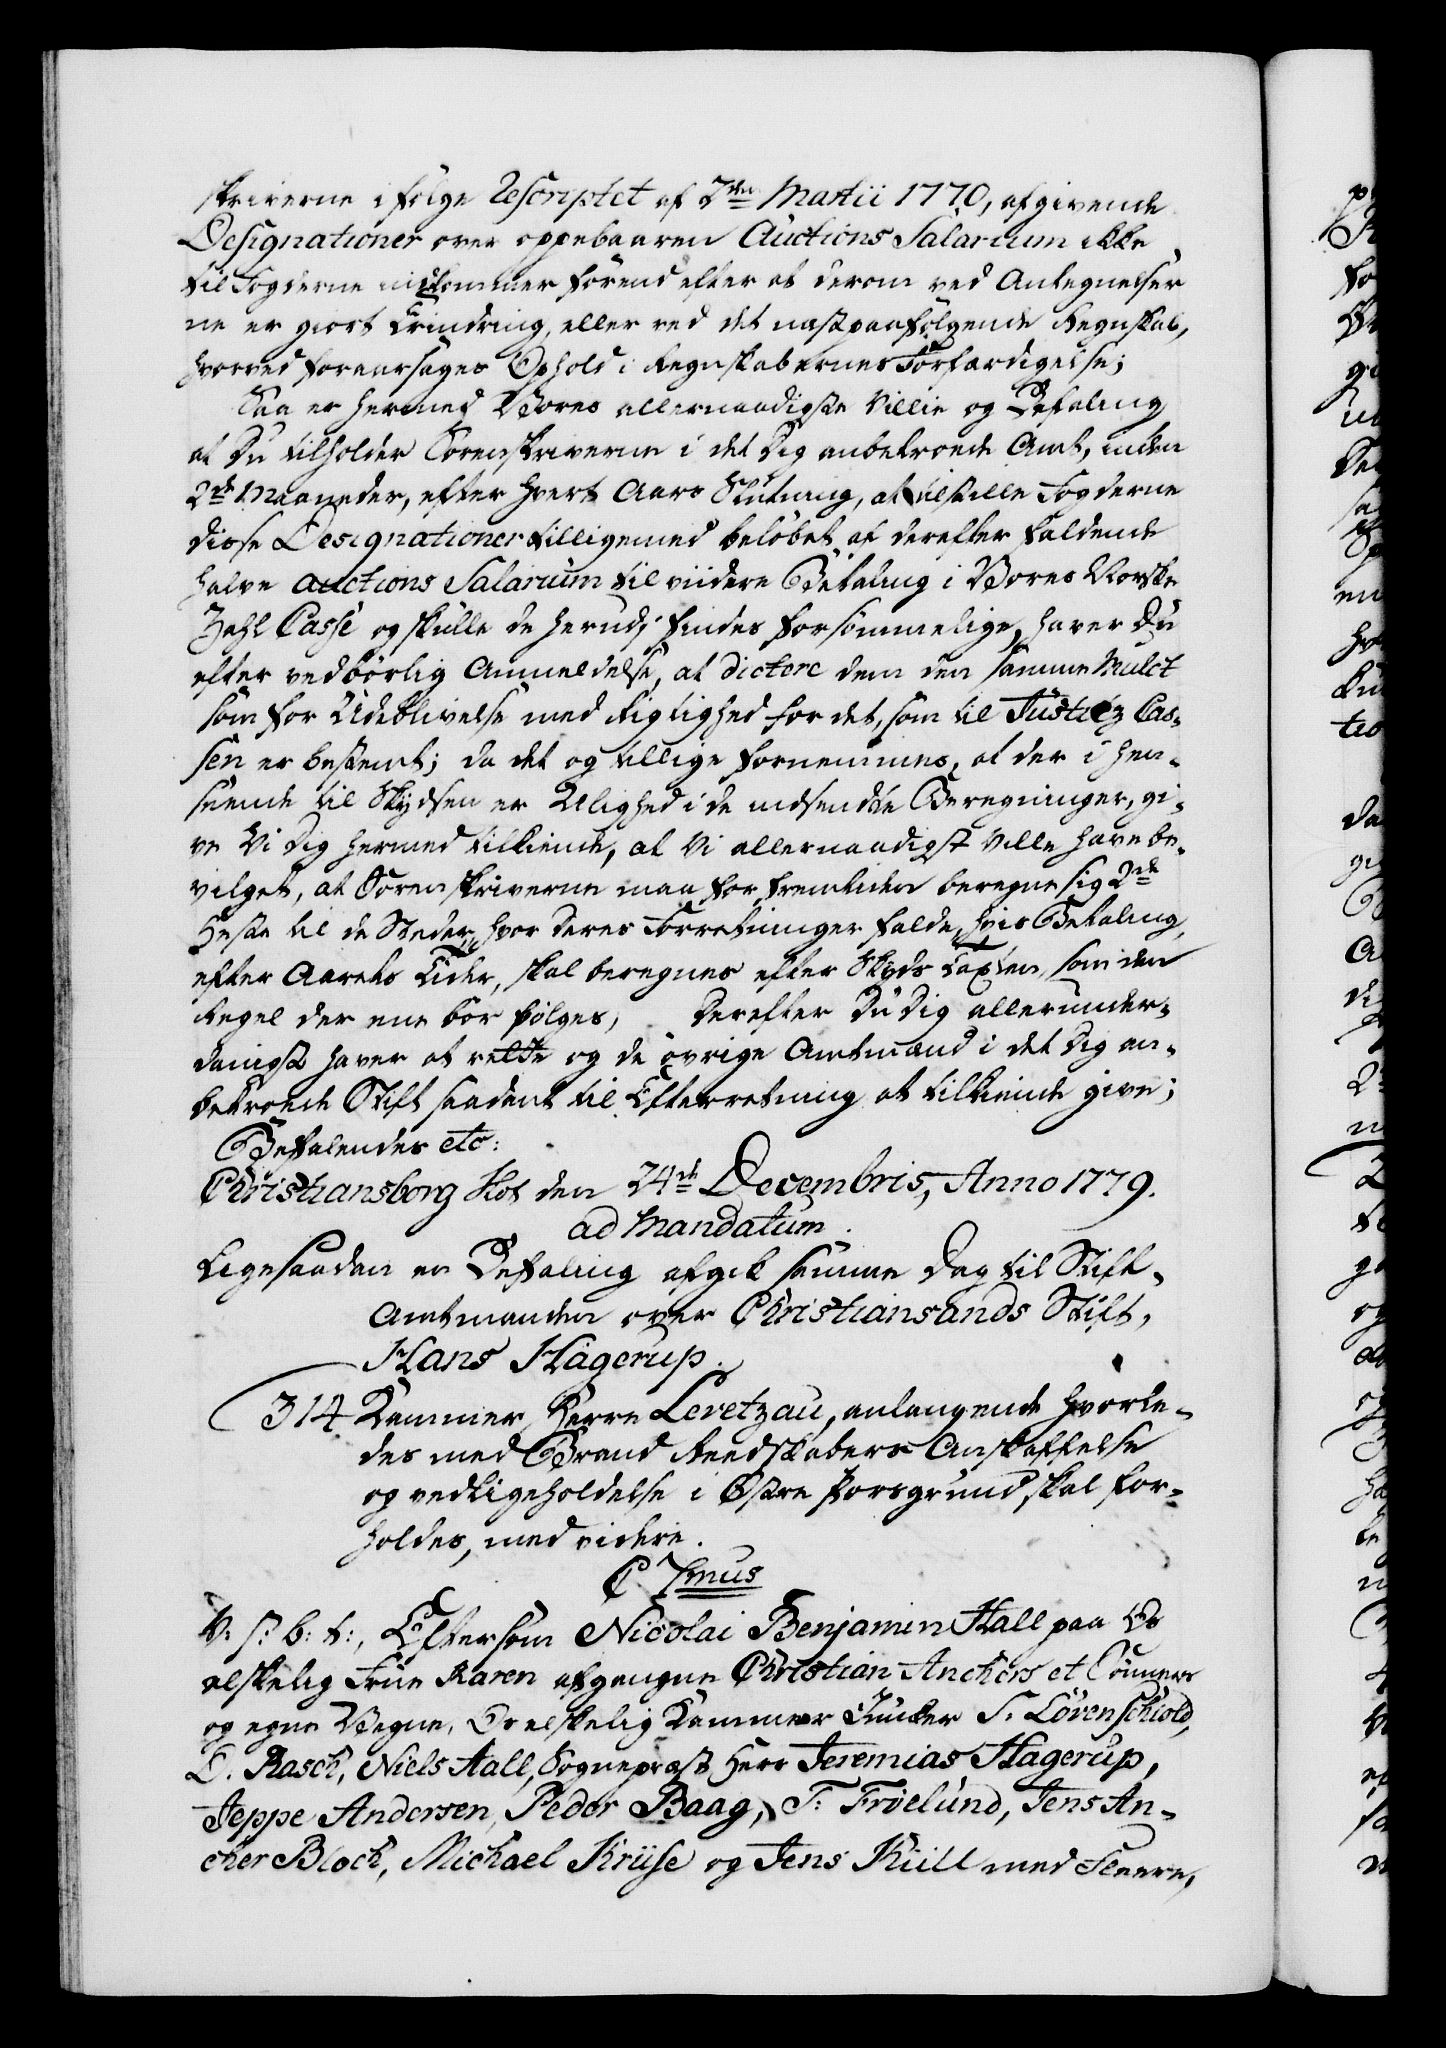 skriverne i følge Rescriptet af 7de Martii 1770, afgivende
Designationer over oppebaaren Auctions Salarium ikke
til Fogderne indkommer førend efter at derom ved Antegnelser
ne er giort Erindring, eller ved det nastpaafølgende Regnskab,
hvorved foraarsages Ophold i Regnskabernes Forfærdigelse;
Saa er hermed Vores allernaadigste Villie og Befaling
at Du tilholder Sorenskriverne i det Dig anbetroede Amt, inden
2de Maaneder, efter hvert Aars Slutning, at tilstille Fogderne
disse Designationer tilligemed beløbet af derefter faldende
halve Auctions Salarium til viidere Betaling i Vores Norske
Zahl Casse og skulle de herudj findes forsømmelige, haver Du
efter vedbørlig Anmeldelse, at dictere dem den samme Mulct
som for Udeblivelse med Rigtighed for det, som til Justitz Cas-
sen er bestemt; da det og tillige fornemmes, at der i Hen-
seende til Skydsen er Ulighed i de indsendte Beregninger, gi-
ve Vi Dig hermed tilkiende, at Vi allernaadigst Ville have be-
vilget, at Sorenskriverne maa for fremtiden beregne sig 2de
Heste til de Steder, hvor deres Forretninger falde, hvis Betaling,
efter Aarets Tider, skal beregnes efter Skyds Taxten, som den
Regel der ene bør følges, Derefter Du Dig allerunder-
danigst haver at rette og de øvrige Amtmænd i det Dig an-
betroede Stift saadant til Efterretning at tilkiende give;
Befalendes etc:
Christiansborg Slot den 24de Decembris, Anno 1779.
ad Mandatum.
Ligesaadan en Befaling afgik samme Dag til Stift-
Amtmanden over Christiansands Stift,
Hans Hagerup.
314 Kammer Herre Levetzau, anlangende hvorle-
des med Brand Reedskabers Anskaffelse
og vedligeholdelse i Østre Porsgrund, skal for-
holdes, med videre.
C 7mus
V. s: b: t:, Eftersom Nicolai Benjamin Aall paa Os
elskelig Frue Karen afgangne Christian Anchers et Sønners
og egne Vegne, Os elskelig Kammer Junker S. Løvenschiold,
D. Rasch, Niels Aall, Sogneprest Herr Jeremias Hagerup,
Jeppe Andersen, Peder Baag, F: Frøelund, Jens An-
cher Bloch, Michael Kruse og Jens Kiill med Fleere,